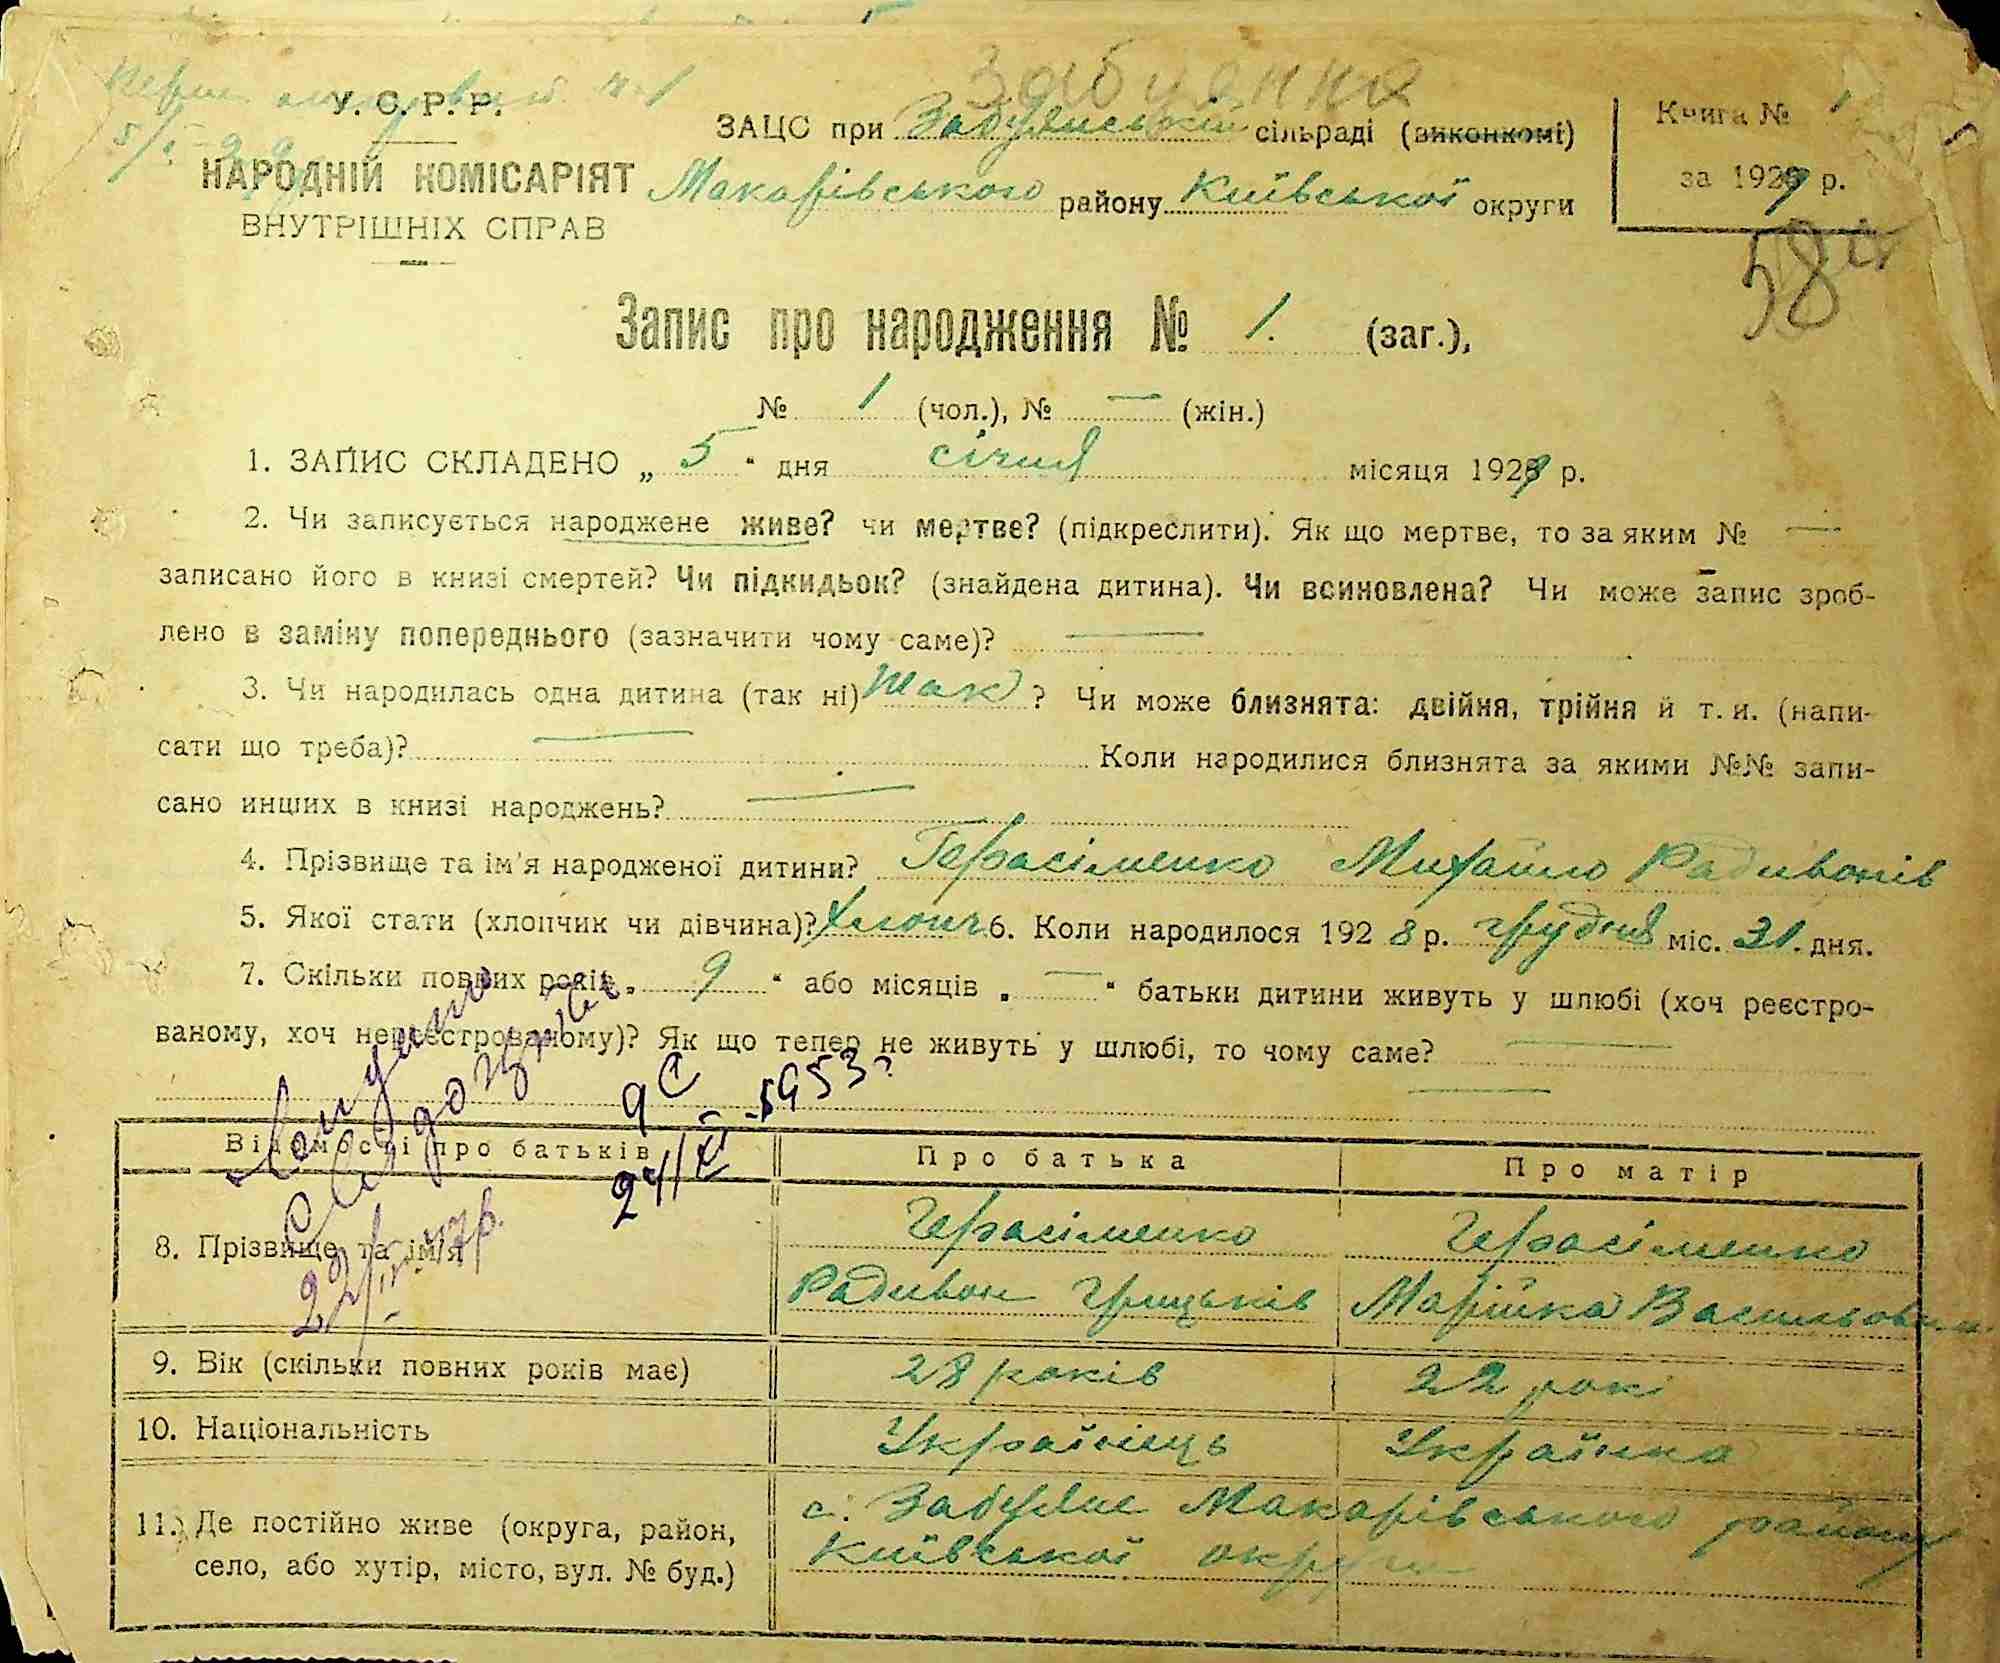 Забуяння
У. С. Р. Р.
НАРОДНІЙ КОМІСАРІЯТ
ВНУТРІШНІХ СПРАВ
ЗАЦС при Забуянській сільраді (виконкомі)
Макарівського району Київської округи
Книга № 1
за 1929 р.
58
Запис про народження № 1. (заг.),
№ 1 (чол.), № — (жін.)
1. ЗАПИС СКЛАДЕНО „ 5 “ дня січня місяця 1929 р.
2. Чи записується народжене живе? чи мертве? (підкреслити). Як що мертве, то за яким № —
записано його в книзі смертей? Чи підкидьок? (знайдена дитина). Чи всиновлена? Чи може запис зроб-
лено в заміну попереднього (зазначити чому саме)? —
3. Чи народилась одна дитина (так ні) так ? Чи може близнята: двійня, трійня й т. и. (напи-
сати що треба)? — Коли народилися близнята за якими №№ запи-
сано инших в книзі народжень? —
4. Прізвище та ім'я народженої дитини? Герасіменко Михайло Радивонів
5. Якої стати (хлопчик чи дівчина)? Хлопч. 6. Коли народилося 1928 р. грудня міс. 31. дня.
7. Скільки повних років „ 9 “ або місяців „ — “ батьки дитини живуть у шлюбі (хоч реєстро-
ваному, хоч нереєстрованому)? Як що тепер не живуть у шлюбі, то чому саме? —
24/XI-1953г
Відомості про батьків
Про батька
Про матір
8. Прізвище та ім'я
Герасіменко
Радивон Грицьків
Герасіменко
Марійка Васильовна
9. Вік (скільки повних років має)
28 років
22 рокі
10. Національність
Українець
Українка
11. Де постійно живе (округа, район,
село, або хутір, місто, вул. № буд.)
с. Забуяне Макарівського району
Київської округи